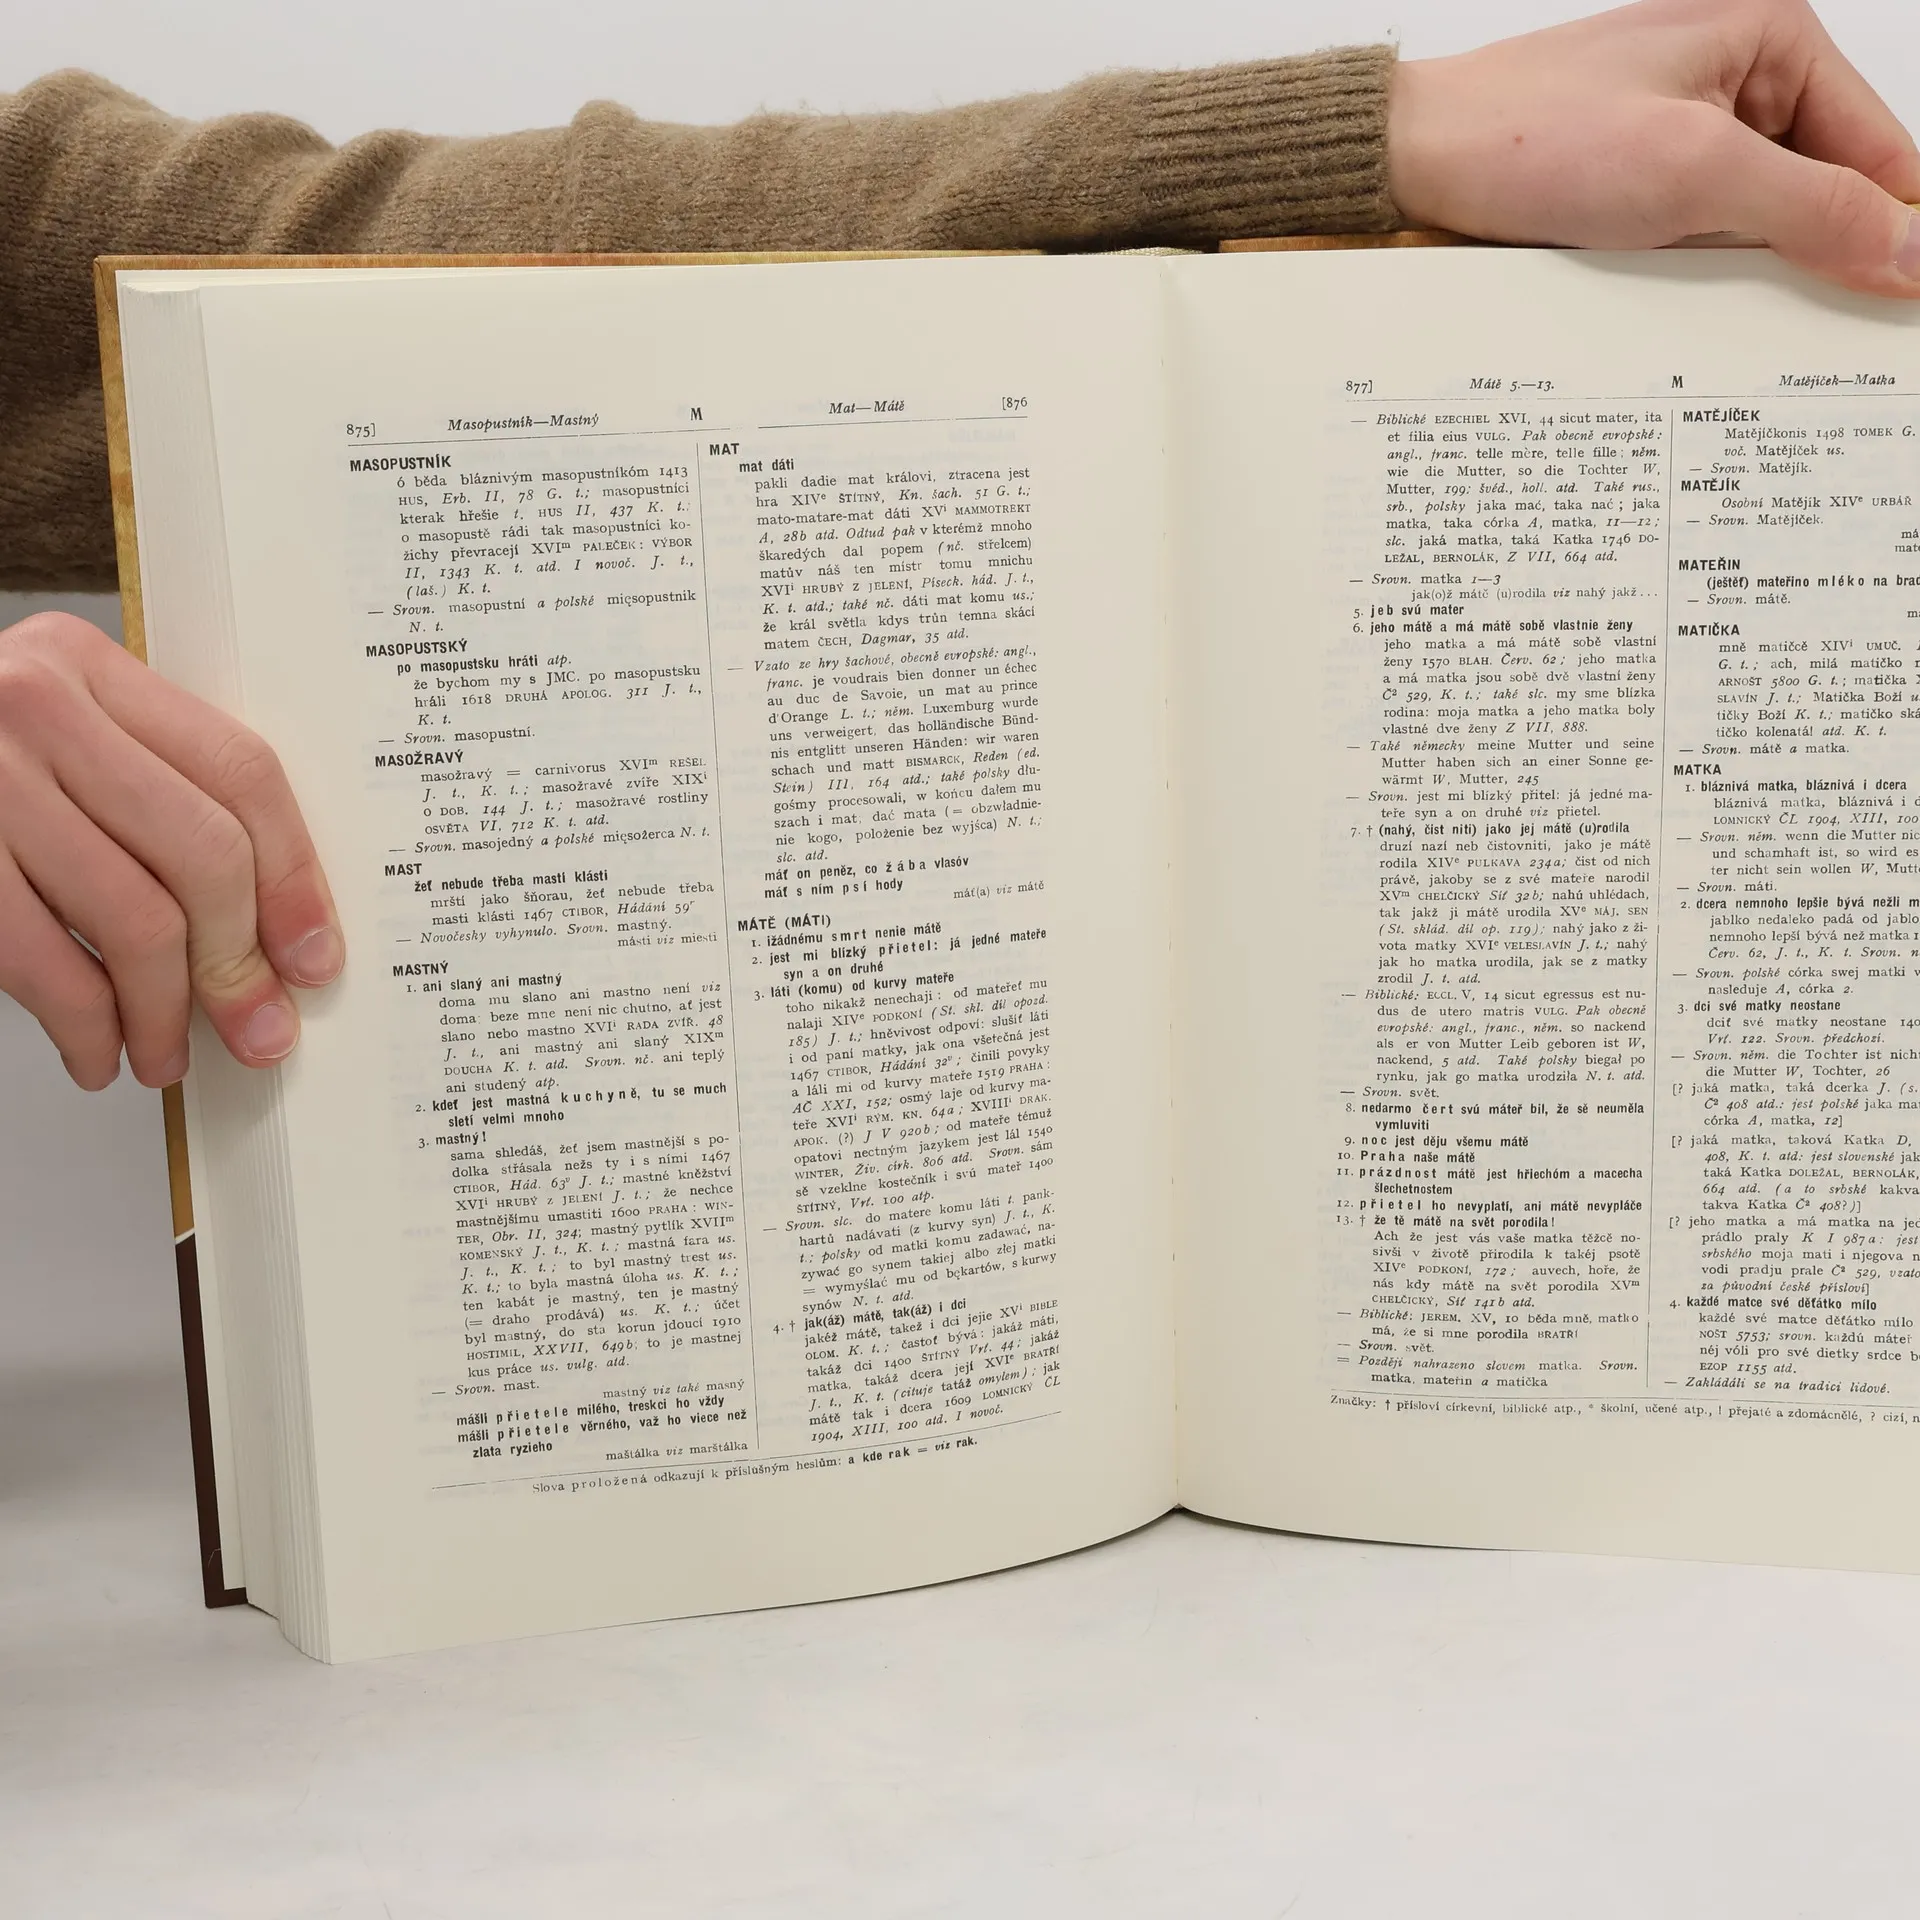 875] Masopustník—Mastný M Mat—Mátě [876
MASOPUSTNÍK
ó běda bláznivým masopustníkóm 1413
HUS, Erb. II, 78 G. t.; masopustníci
kterak hřešie t. HUS II, 437 K. t.;
o masopustě rádi tak masopustníci ko-
žichy převracejí XVIm PALEČEK: VÝBOR
II, 1343 K. t. atd. I novoč. J. t.,
(laš.) K. t.
— Srovn. masopustní a polské mięsopustnik
N. t.
MASOPUSTSKÝ
po masopustsku hráti atp.
že bychom my s JMC. po masopustsku
hráli 1618 DRUHÁ APOLOG. 311 J. t.,
K. t.
— Srovn. masopustní.
MASOŽRAVÝ
masožravý = carnivorus XVIm REŠEL
J. t., K. t.; masožravé zvíře XIXi
O DOB. 144 J. t.; masožravé rostliny
OSVĚTA VI, 712 K. t. atd.
— Srovn. masojedný a polské mięsożerca N. t.
MAST
žeť nebude třeba mastí klásti
mrští jako šňorau, žeť nebude třeba
masti klásti 1467 CTIBOR, Hádání 59r
— Novočesky vyhynulo. Srovn. mastný.
másti viz miesti
MASTNÝ
1. ani slaný ani mastný
doma mu slano ani mastno není viz
doma; beze mne není nic chutno, ať jest
slano nebo mastno XVIi RADA ZVÍŘ. 48
J. t., ani mastný ani slaný XIXm
DOUCHA K. t. atd. Srovn. nč. ani teplý
ani studený atp.
2. kdeť jest mastná kuchyně, tu se much
sletí velmi mnoho
3. mastný!
sama shledáš, žeť jsem mastnější s po-
dolka střásala nežs ty i s ními 1467
CTIBOR, Hád. 63v J. t.; mastné kněžství
XVIi HRUBÝ Z JELENÍ J. t.; že nechce
mastnějšímu umastiti 1600 PRAHA: WIN-
TER, Obr. II, 324; mastný pytlík XVIIm
KOMENSKÝ J. t., K. t.; mastná fara us.
J. t., K. t.; to byl mastný trest us.
K. t.; to byla mastná úloha us. K. t.;
ten kabát je mastný, ten je mastný
(= draho prodává) us. K. t.; účet
byl mastný, do sta korun jdoucí 1910
HOSTIMIL, XXVII, 649b; to je mastnej
kus práce us. vulg. atd.
— Srovn. mast.
mastný viz také masný
mášli přietele milého, treskci ho vždy
mášli přietele věrného, važ ho viece než
zlata ryzieho
maštálka viz marštálka
MAT
mat dáti
pakli dadie mat královi, ztracena jest
hra XIVe ŠTÍTNÝ, Kn. šach. 51 G. t.;
mato-matare-mat dáti XVi MAMMOTREKT
A, 28b atd. Odtud pak v kterémž mnoho
škaredých dal popem (nč. střelcem)
matův náš ten mistr tomu mnichu
XVIi HRUBÝ Z JELENÍ, Píseck. hád. J. t.,
K. t. atd.; také nč. dáti mat komu us.;
že král světla kdys trůn temna skácí
matem ČECH, Dagmar, 35 atd.
— Vzato ze hry šachové, obecně evropské: angl.,
franc. je voudrais bien donner un échec
au duc de Savoie, un mat au prince
d'Orange L. t.; něm. Luxemburg wurde
uns verweigert, das holländische Bünd-
nis entglitt unseren Händen: wir waren
schach und matt BISMARCK, Reden (ed.
Stein) III, 164 atd.; také polsky dłu-
gośmy procesowali, w końcu dałem mu
szach i mat; dać mata (= obzwładnie-
nie kogo, położenie bez wyjśca) N. t.;
slc. atd.
máť on peněz, co žába vlasóv
máť s ním psí hody
máť(a) viz mátě
MÁTĚ (MÁTI)
1. ižádnému smrt nenie mátě
2. jest mi blízký přietel: já jedné mateře
syn a on druhé
3. láti (komu) od kurvy mateře
toho nikakž nenechaji: od mateřeť mu
nalaji XIVe PODKONÍ (St. skl. díl opozd.
185) J. t.; hněvivost odpoví: slušíť láti
i od paní matky, jak ona všetečná jest
1467 CTIBOR, Hádání 32v; činili povyky
a láli mi od kurvy mateře 1519 PRAHA:
AČ XXI, 152; osmý laje od kurvy ma-
teře XVIi RÝM. KN. 64a; XVIIIi DRAK.
APOK. (?) J V 920b; od mateře témuž
opatovi nectným jazykem jest lál 1540
WINTER, Živ. círk. 806 atd. Srovn. sám
sě vzeklne kostečník i svú mateř 1400
ŠTÍTNÝ, Vrt. 100 atp.
— Srovn. slc. do matere komu láti t. pank-
hartů nadávati (z kurvy syn) J. t., K.
t.; polsky od matki komu zadawać, na-
zywać go synem takiej albo złej matki
= wymyślać mu od bękartów, s kurwy
synów N. t. atd.
4. † jak(áž) mátě, tak(áž) i dci
jakéž mátě, takež i dci jejie XVi BIBLE
OLOM. K. t.; častoť bývá: jakáž máti,
takáž dci 1400 ŠTÍTNÝ Vrt. 44; jakáž
matka, takáž dcera její XVIe BRATŘÍ
J. t., K. t. (cituje tatáž omylem); jak
mátě tak i dcera 1609 LOMNICKÝ ČL
1904, XIII, 100 atd. I novoč.
Slova proložená odkazují k příslušným heslům: a kde rak = viz rak.
877] Mátě 5.—13. M Matějíček—Matka
— Biblické EZECHIEL XVI, 44 sicut mater, ita
et filia eius VULG. Pak obecně evropské:
angl., franc. telle mère, telle fille; něm.
wie die Mutter, so die Tochter W,
Mutter, 199; švéd., holl. atd. Také rus.,
srb., polsky jaka mać, taka nać; jaka
matka, taka córka A, matka, 11—12;
slc. jaká matka, taká Katka 1746 DO-
LEŽAL, BERNOLÁK, Z VII, 664 atd.
— Srovn. matka 1—3
jak(o)ž mátě (u)rodila viz nahý jakž...
5. jeb svú mater
6. jeho mátě a má mátě sobě vlastnie ženy
jeho matka a má mátě sobě vlastní
ženy 1570 BLAH. Červ. 62; jeho matka
a má matka jsou sobě dvě vlastní ženy
Č² 529, K. t.; také slc. my sme blízka
rodina: moja matka a jeho matka boly
vlastné dve ženy Z VII, 888.
— Také německy meine Mutter und seine
Mutter haben sich an einer Sonne ge-
wärmt W, Mutter, 245
— Srovn. jest mi blízký přítel: já jedné ma-
teře syn a on druhé viz přietel.
7. † (nahý, čist nití) jako jej mátě (u)rodila
druzí nazí neb čistovniti, jako je mátě
rodila XIVe PULKAVA 234a; čist od nich
právě, jakoby se z své mateře narodil
XVm CHELČICKÝ Síť 32b; nahú uhlédach,
tak jakž ji mátě urodila XVe MÁJ. SEN
(St. sklád. díl op. 119); nahý jako z ži-
vota matky XVIe VELESLAVÍN J. t.; nahý
jak ho matka urodila, jak se z matky
zrodil J. t. atd.
— Biblické: ECCL, V, 14 sicut egressus est nu-
dus de utero matris VULG. Pak obecně
evropské: angl., franc., něm. so nackend
als er von Mutter Leib geboren ist W,
nackend, 5 atd. Také polsky biegał po
rynku, jak go matka urodziła N. t. atd.
— Srovn. svět.
8. nedarmo čert svú máteř bil, že sě neuměla
vymluviti
9. noc jest děju všemu mátě
10. Praha naše mátě
11. prázdnost mátě jest hřiechóm a macecha
šlechetnostem
12. přietel ho nevyplatí, ani mátě nevypláče
13. † že tě mátě na svět porodila!
Ach že jest vás vaše matka těžcě no-
sivši v životě přirodila k takéj psotě
XIVe PODKONÍ, 172; auvech, hoře, že
nás kdy mátě na svět porodila XVm
CHELČICKÝ, Síť 141b atd.
— Biblické: JEREM. XV, 10 běda mně, matko
má, že si mne porodila BRATŘÍ
— Srovn. svět.
= Později nahrazeno slovem matka. Srovn.
matka, mateřin a matička
MATĚJÍČEK
Matějíčkonis 1498 TOMEK G.
voč. Matějíček us.
— Srovn. Matějík.
MATĚJÍK
Osobní Matějík XIVe URBÁŘ
— Srovn. Matějíček.
MATEŘIN
(ještěť) mateřino mléko na
— Srovn. mátě.
MATIČKA
mně matičcě XIVi UMUČ.
G. t.; ach, milá matičko
ARNOŠT 5800 G. t.; matička
SLAVÍN J. t.; Matička Boží
tičky Boží K. t.; matičko
tičko kolenatá! atd. K. t.
— Srovn. mátě a matka.
MATKA
1. bláznivá matka, bláznivá i dcera
bláznivá matka, bláznivá i
LOMNICKÝ ČL 1904, XIII, 100
— Srovn. něm. wenn die Mutter
und schamhaft ist, so wird es
ter nicht sein wollen W,
— Srovn. máti.
2. dcera nemnoho lepšie bývá nežli
jablko nedaleko padá od
nemnoho lepší bývá než matka
Červ. 62, J. t., K. t. Srovn.
— Srovn. polské córka swej matki
nasleduje A, córka 2.
3. dci své matky neostane
dciť své matky neostane
Vrt. 122. Srovn. předchozí.
— Srovn. něm. die Tochter ist
die Mutter W, Tochter, 26
[? jaká matka, taká dcerka J.
Č² 408 atd.: jest polské jaka
córka A, matka, 12]
[? jaká matka, taková Katka D,
408, K. t. atd: jest slovenské
taká Katka DOLEŽAL, BERNOLÁK,
664 atd. (a to srbské kakva
takva Katka Č² 408?)]
[? jeho matka a má matka na
prádlo praly K I 987a: jest
srbského moja mati i njegova
vodi pradju prale Č² 529,
za původní české přísloví]
4. každé matce své děťátko mílo
každé své matce děťátko mílo
NOŠT 5753; srovn. každú máteř
néj vóli pro své dietky srdce
EZOP 1155 atd.
— Zakládáli se na tradici lidové.
Značky: † přísloví církevní, biblické atp., * školní, učené atp., ! přejaté a zdomácnělé, ? cizí,